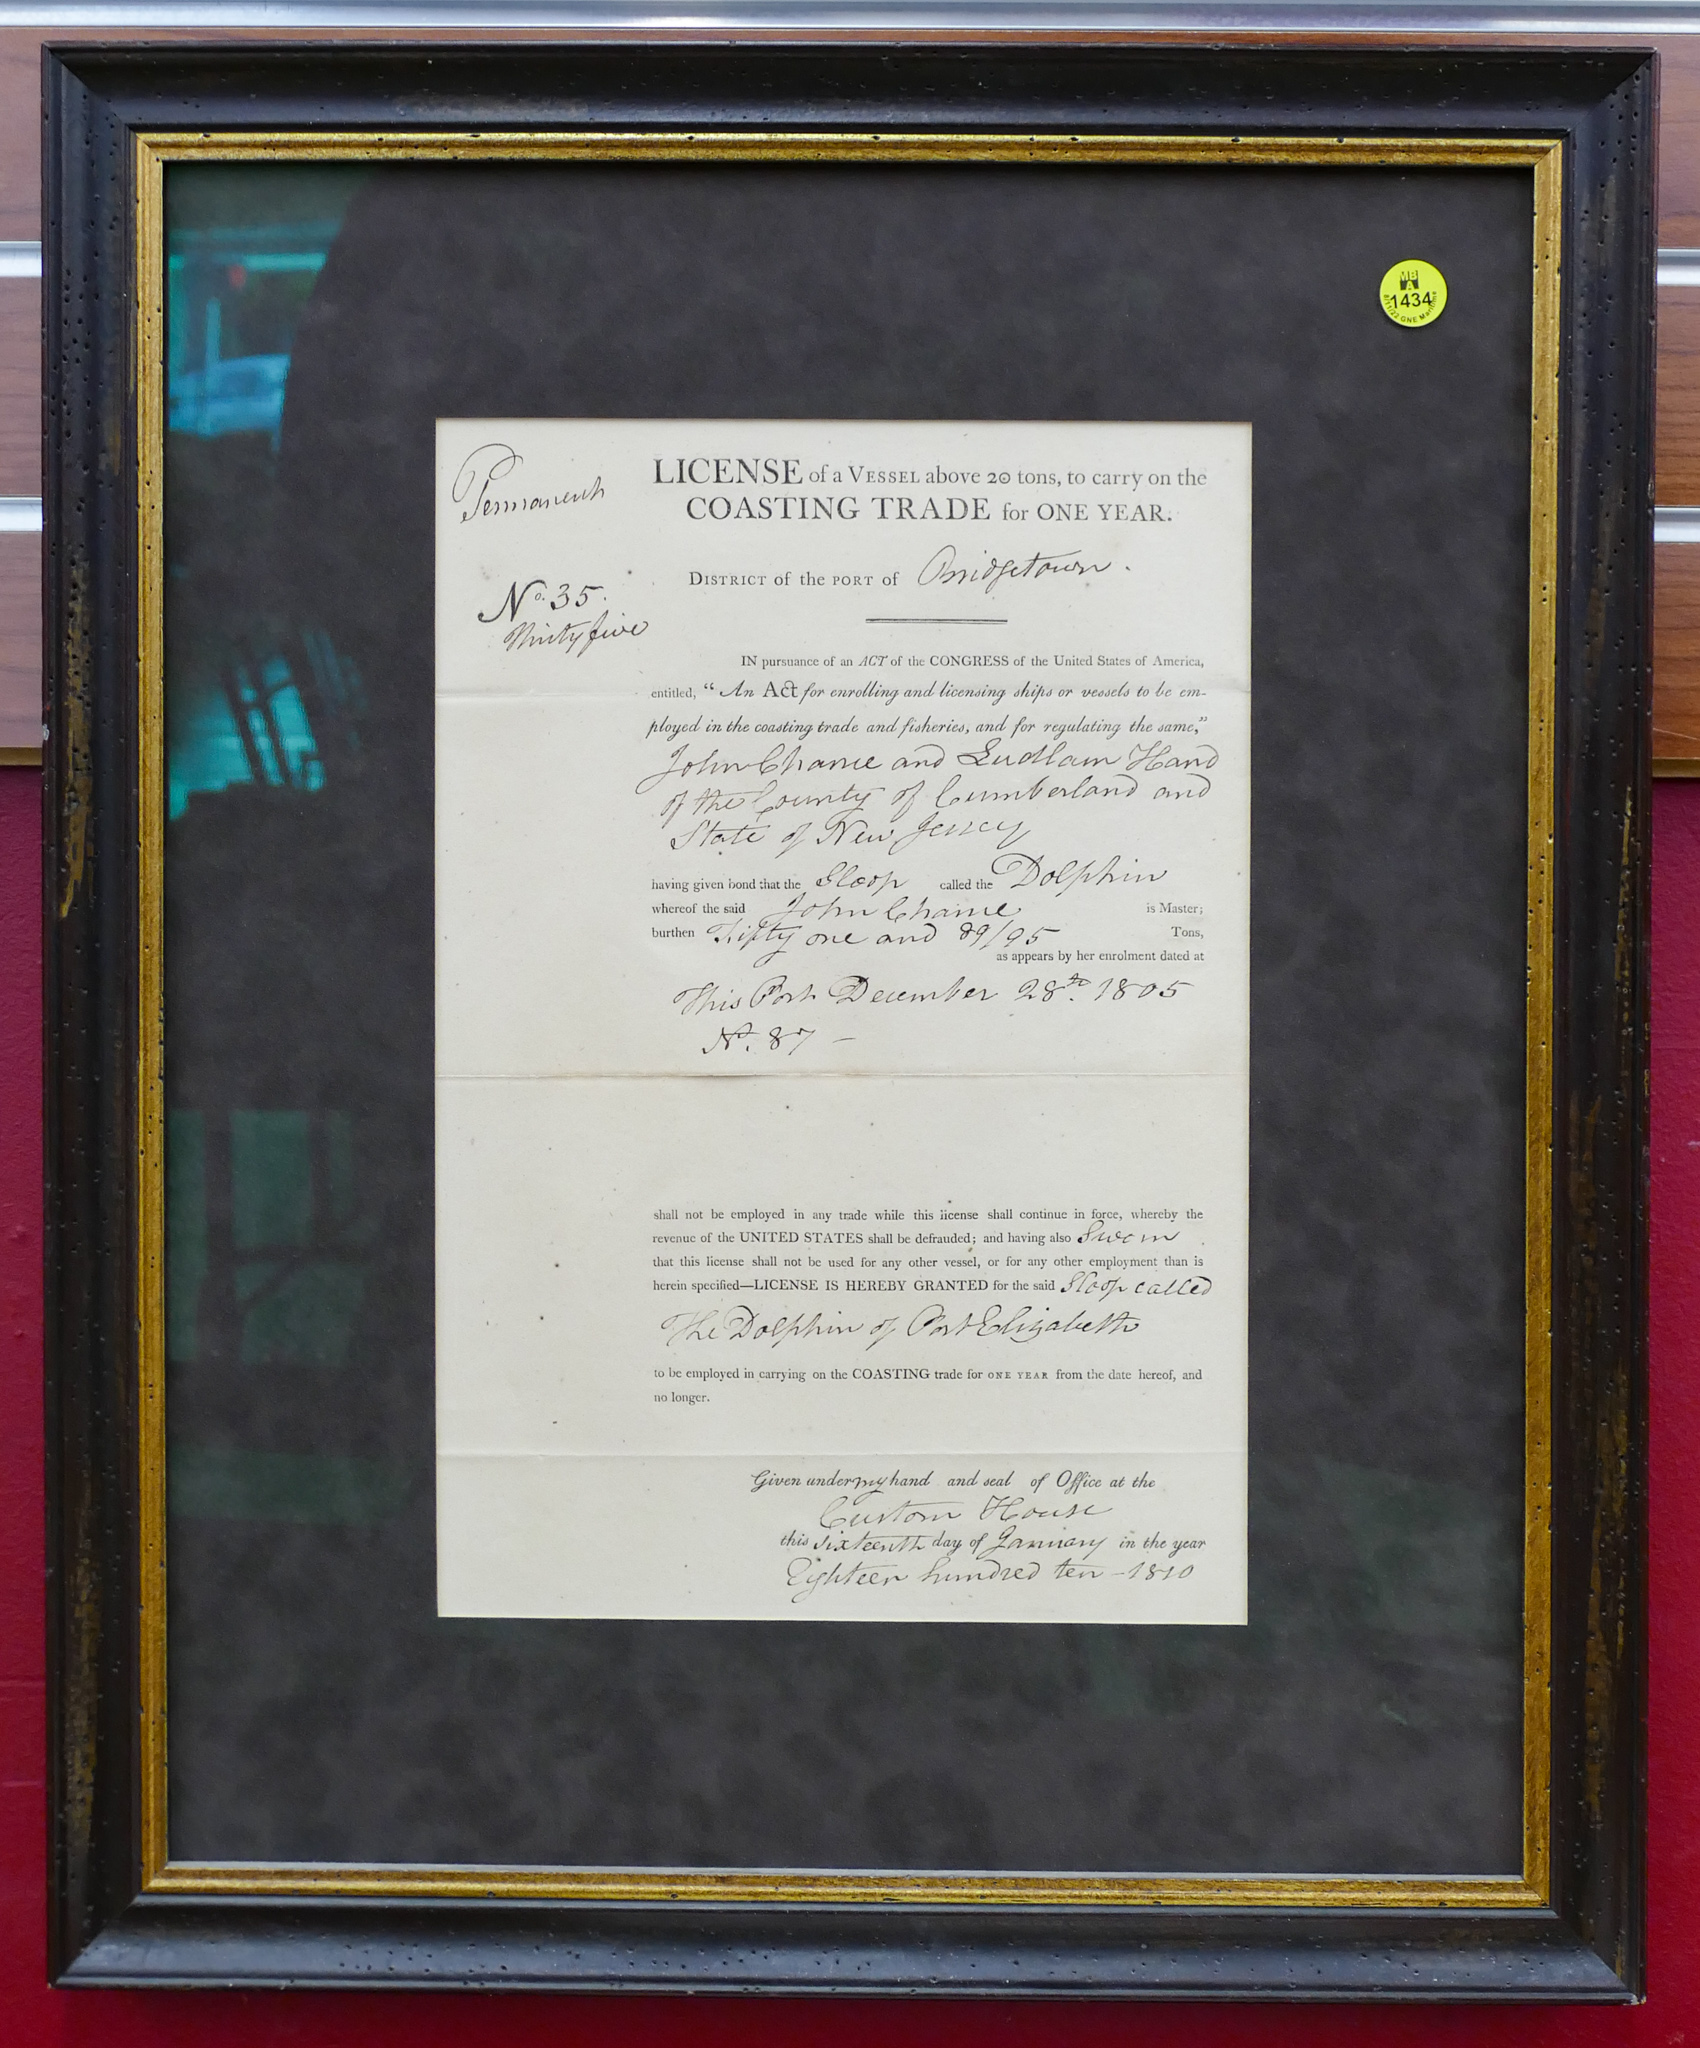 MB
A
1434
8/11/22 GNE Maritime
Permanent
LICENSE of a VESSEL above 20 tons, to carry on the
COASTING TRADE for ONE YEAR.
DISTRICT of the PORT of Bridgetown.
No. 35.
Thirty five
IN pursuance of an ACT of the CONGRESS of the United States of America,
entitled, "An Act for enrolling and licensing ships or vessels to be em-
ployed in the coasting trade and fisheries, and for regulating the same,"
John Chance and Ludlam Hand
of the County of Cumberland and
State of New Jersey
having given bond that the Sloop called the Dolphin
whereof the said John Chance is Master;
burthen Fifty one and 89/95 Tons,
as appears by her enrolment dated at
This Port December 28th. 1805
No. 87 –
shall not be employed in any trade while this license shall continue in force, whereby the
revenue of the UNITED STATES shall be defrauded; and having also Sworn
that this license shall not be used for any other vessel, or for any other employment than is
herein specified—LICENSE IS HEREBY GRANTED for the said Sloop called
The Dolphin of Port Elizabeth
to be employed in carrying on the COASTING trade for ONE YEAR from the date hereof, and
no longer.
Given under my hand and seal of Office at the
Custom House
this sixteenth day of January in the year
Eighteen hundred ten – 1810